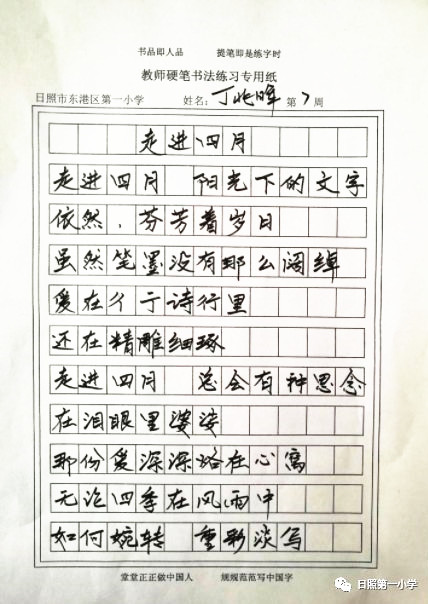 书品即人品 提笔即是练字时
教师硬笔书法练习专用纸
日照市东港区第一小学 姓名：丁兆晖 第7周
走进四月
走进四月 阳光下的文字
依然，芬芳着岁日
虽然笔墨没有那么阔绰
爱在彳亍诗行里
还在精雕细琢
走进四月 总会有种思念
在泪眼里婆娑
那份爱深深烙在心窝
无论四季在风雨中
如何婉转 重彩淡写
堂堂正正做中国人 规规范范写中国字
日照第一小学